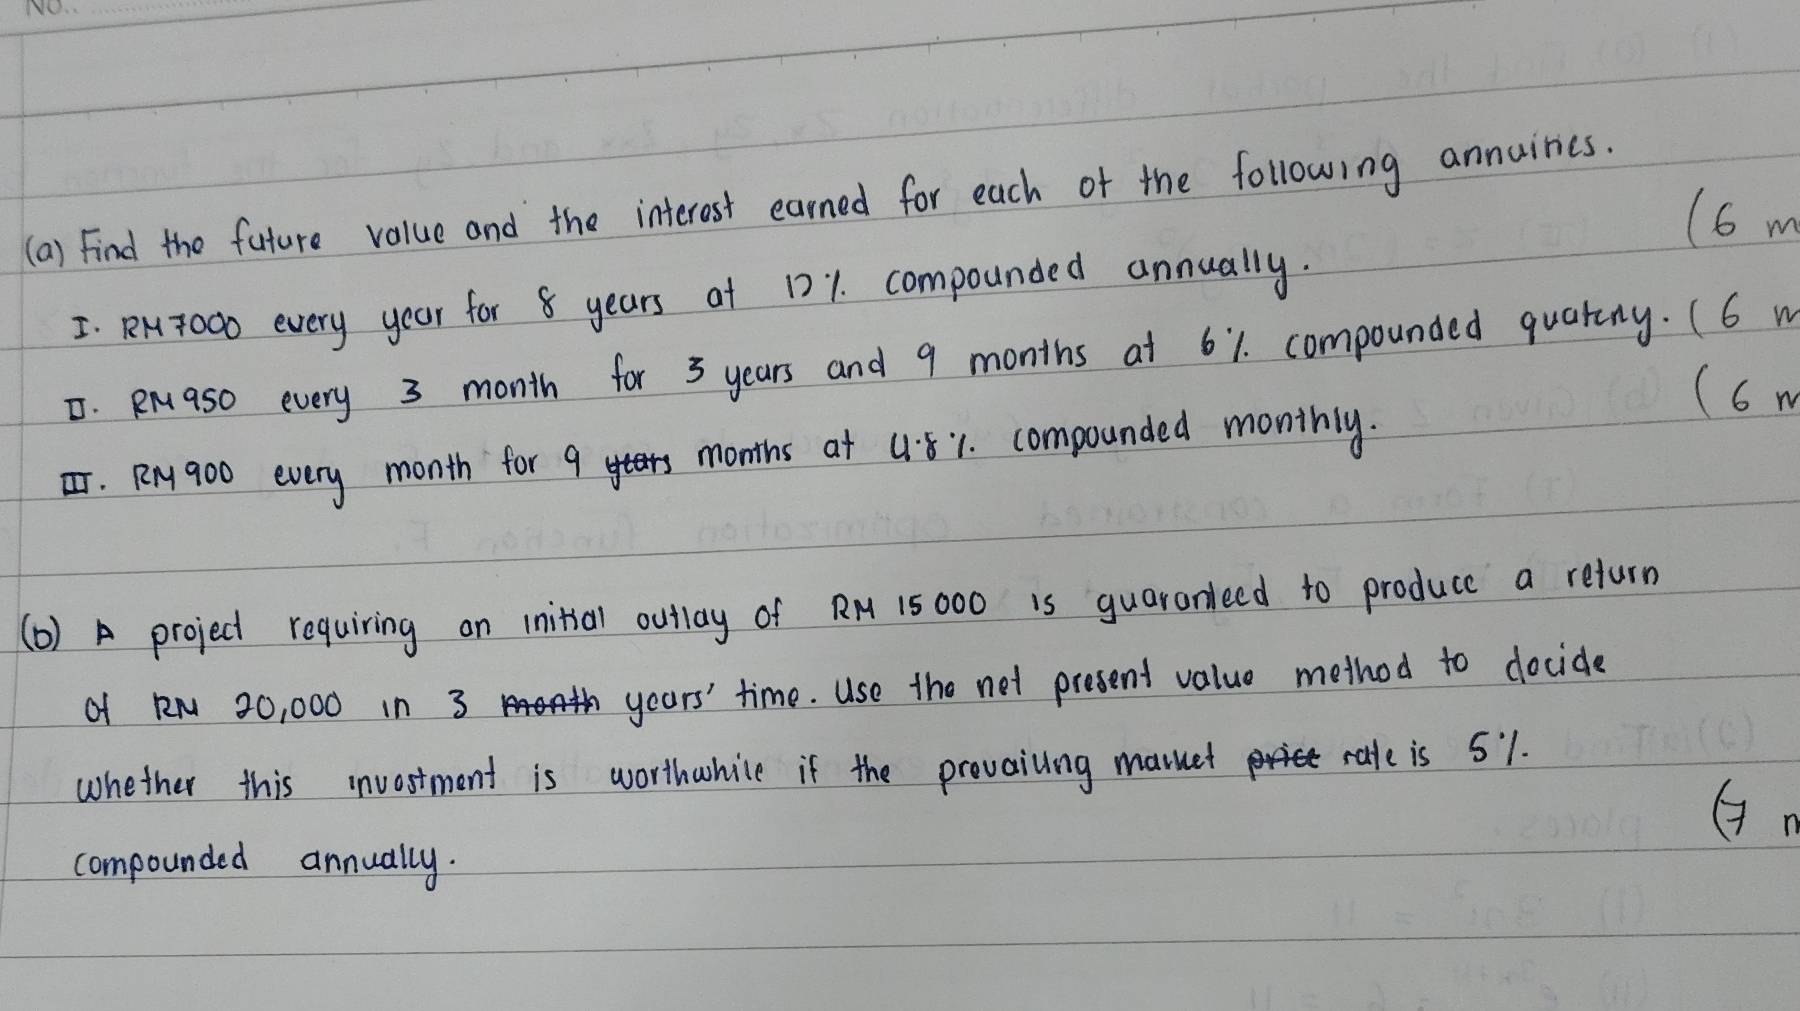 No..
(a) Find the future value and the interest earned for each of the following annuities.
(6 m
I. RM 7000 every year for 8 years at 12 % compounded annually.
II. RM 950 every 3 month for 3 years and 9 months at 6 % compounded quaterly. (6 m
III. RM 900 every month for 9 years months at 4.8 %. compounded monthly.
(6 m
(b) A project requiring an initial outlay of RM 15 000 is guaranteed to produce a return
of RM 20,000 in 3 month years' time. Use the net present value method to decide
whether this investment is worthwhile if the prevailing market price rate is 5 %.
(7 m
compounded annually.